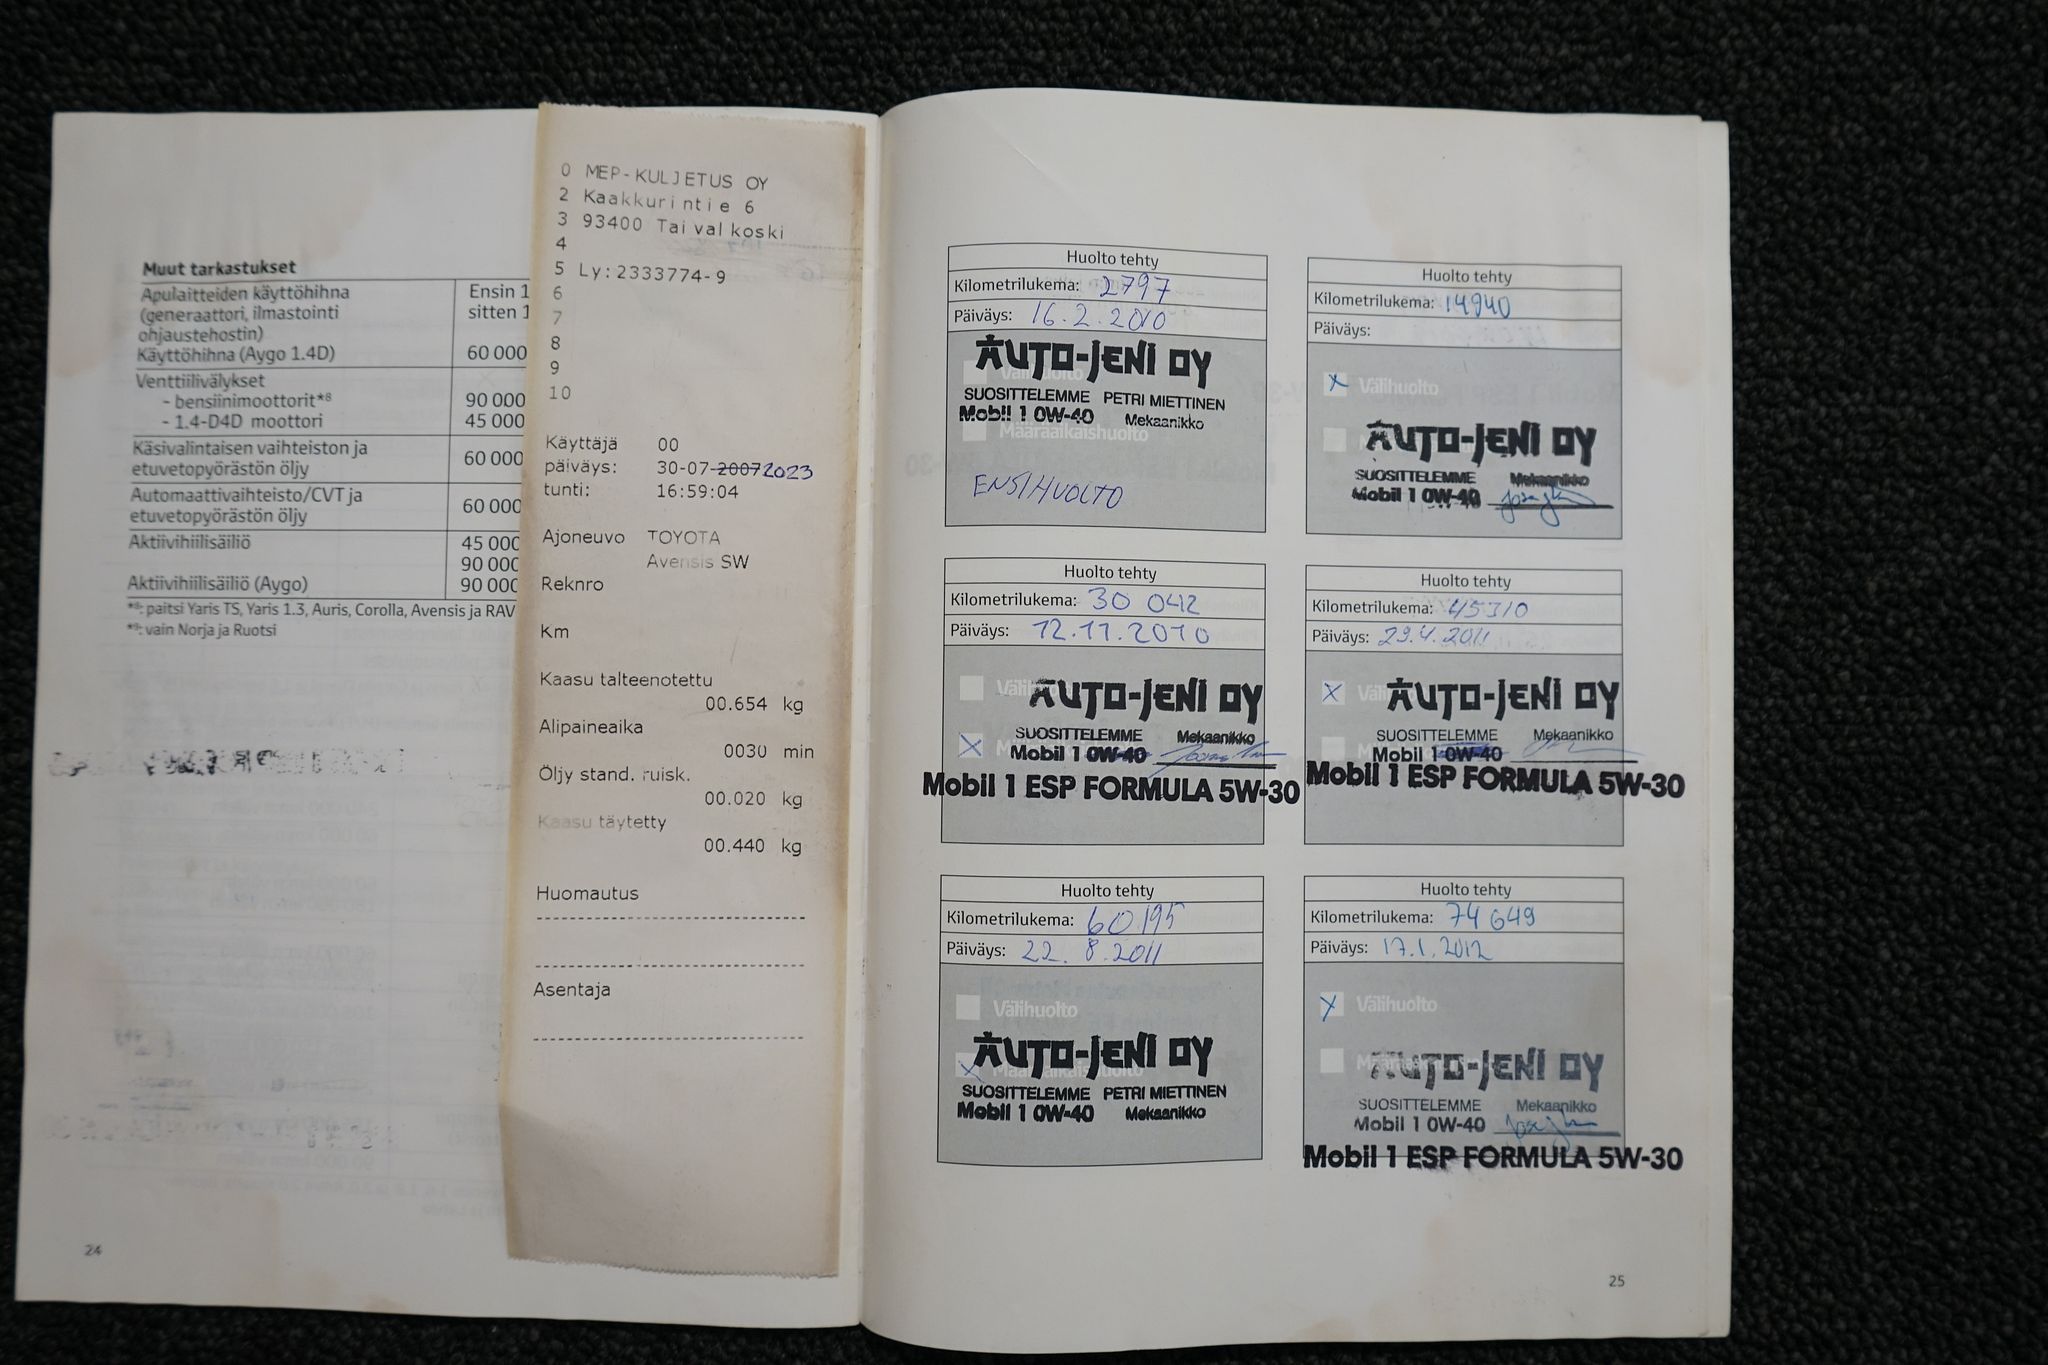 Muut tarkastukset
Apulaitteiden käyttöhihna
(generaattori, ilmastointi
ohjaustehostin)
Ensin 1
sitten 1
Käyttöhihna (Aygo 1.4D) 60 000
Venttiilivälykset
- bensiinimoottorit*⁸ 90 000
- 1.4-D4D moottori 45 000
Käsivalintaisen vaihteiston ja
etuvetopyörästön öljy 60 000
Automaattivaihteisto/CVT ja
etuvetopyörästön öljy 60 000
Aktiivihiilisäiliö 45 000
90 000
Aktiivihiilisäiliö (Aygo) 90 000
*⁸: paitsi Yaris TS, Yaris 1.3, Auris, Corolla, Avensis ja RAV
*⁹: vain Norja ja Ruotsi
24
0 MEP-KULJETUS OY
2 Kaakkurintie 6
3 93400 Taivalkoski
4
5 Ly:2333774-9
6
7
8
9
10
Käyttäjä 00
päiväys: 30-07-2007 2023
tunti: 16:59:04
Ajoneuvo TOYOTA
Avensis SW
Reknro
Km
Kaasu talteenotettu
00.654 kg
Alipaineaika
0030 min
Öljy stand. ruisk.
00.020 kg
Kaasu täytetty
00.440 kg
Huomautus
Asentaja
Huolto tehty
Kilometrilukema: 2797
Päiväys: 16.2.2010
AUTO-JENI OY
Välihuolto
SUOSITTELEMME PETRI MIETTINEN
Mobil 1 0W-40 Mekaanikko
Määräaikaishuolto
ENSIHUOLTO
Huolto tehty
Kilometrilukema: 14940
Päiväys:
x Välihuolto
AUTO-JENI OY
SUOSITTELEMME Mekaanikko
Mobil 1 0W-40
Huolto tehty
Kilometrilukema: 30 042
Päiväys: 12.11.2010
AUTO-JENI OY
SUOSITTELEMME Mekaanikko
x Mobil 1 0W-40
Mobil 1 ESP FORMULA 5W-30
Huolto tehty
Kilometrilukema: 45310
Päiväys: 29.4.2011
x AUTO-JENI OY
SUOSITTELEMME Mekaanikko
Mobil 1 0W-40
Mobil 1 ESP FORMULA 5W-30
Huolto tehty
Kilometrilukema: 60195
Päiväys: 22.8.2011
Välihuolto
AUTO-JENI OY
x Määräaikaishuolto
SUOSITTELEMME PETRI MIETTINEN
Mobil 1 0W-40 Mekaanikko
Huolto tehty
Kilometrilukema: 74649
Päiväys: 17.1.2012
x Välihuolto
AUTO-JENI OY
SUOSITTELEMME Mekaanikko
Mobil 1 0W-40
Mobil 1 ESP FORMULA 5W-30
25